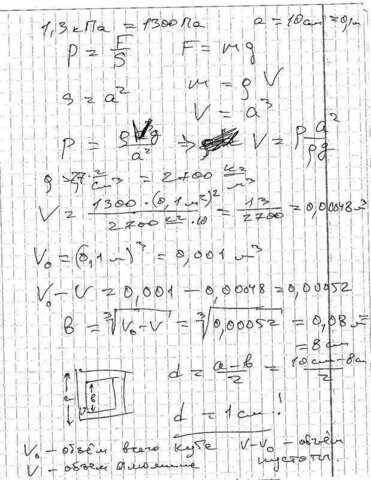 1,3 кПа = 1300 Па a = 10 см = 0,1 м
P = F/S F = mg
s = a² m = ρ V
V = a³
P = ρVg/a² ⇒ V = P a²/ρg
ρ = 2,7 г/см³ = 2700 кг/м³
V = 1300 · (0,1 м)²/2700 кг/м³ · 10 = 13/2700 = 0,00048 м³
V₀ = (0,1 м)³ = 0,001 м³
V₀ - V = 0,001 - 0,00048 = 0,00052
в = ³√V₀-V = ³√0,00052 = 0,08 м
= 8 см
d = a-в/2 = 10 см - 8 см/2
a в
d = 1 см!
V₀ - объём всего куба V-V₀ - объём
V - объём алюминия пустоты.